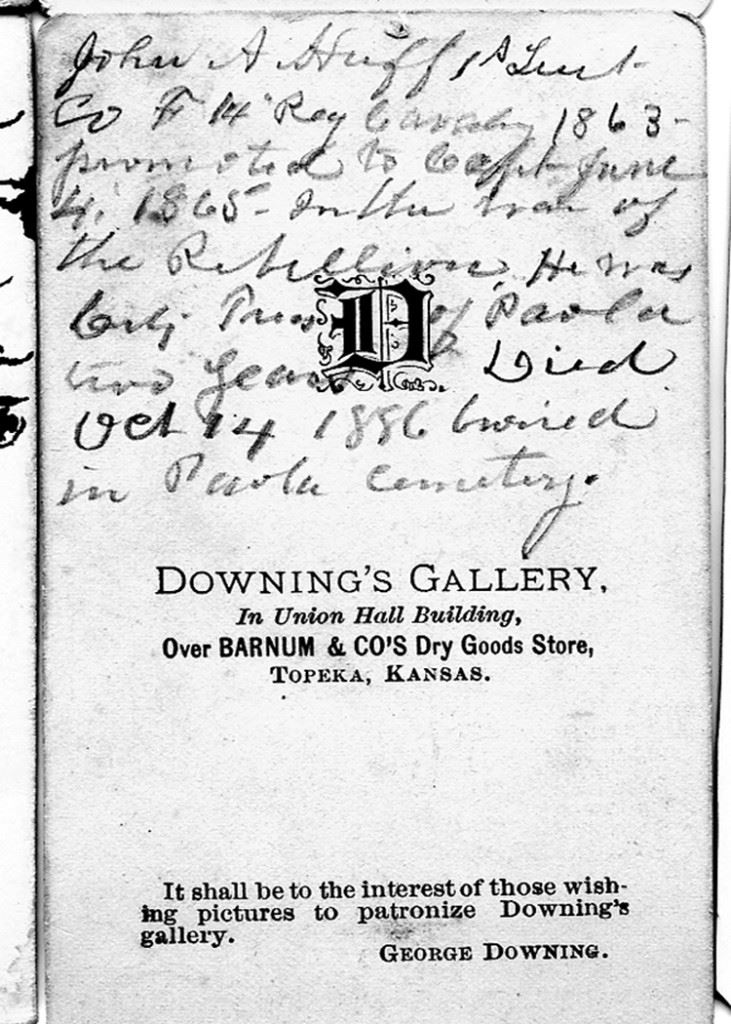 John A Huff 1st Lieut
Co F 14" Reg Cavalry 1863-
promoted to Capt June
4, 1865- In the war of
the Rebellion, He was
City Treas of Paola
two years Died
Oct 14 1886 buried
in Paola cemetery.
D
DOWNING'S GALLERY,
In Union Hall Building,
Over BARNUM & CO'S Dry Goods Store,
TOPEKA, KANSAS.
It shall be to the interest of those wish-
ing pictures to patronize Downing's
gallery.
GEORGE DOWNING.